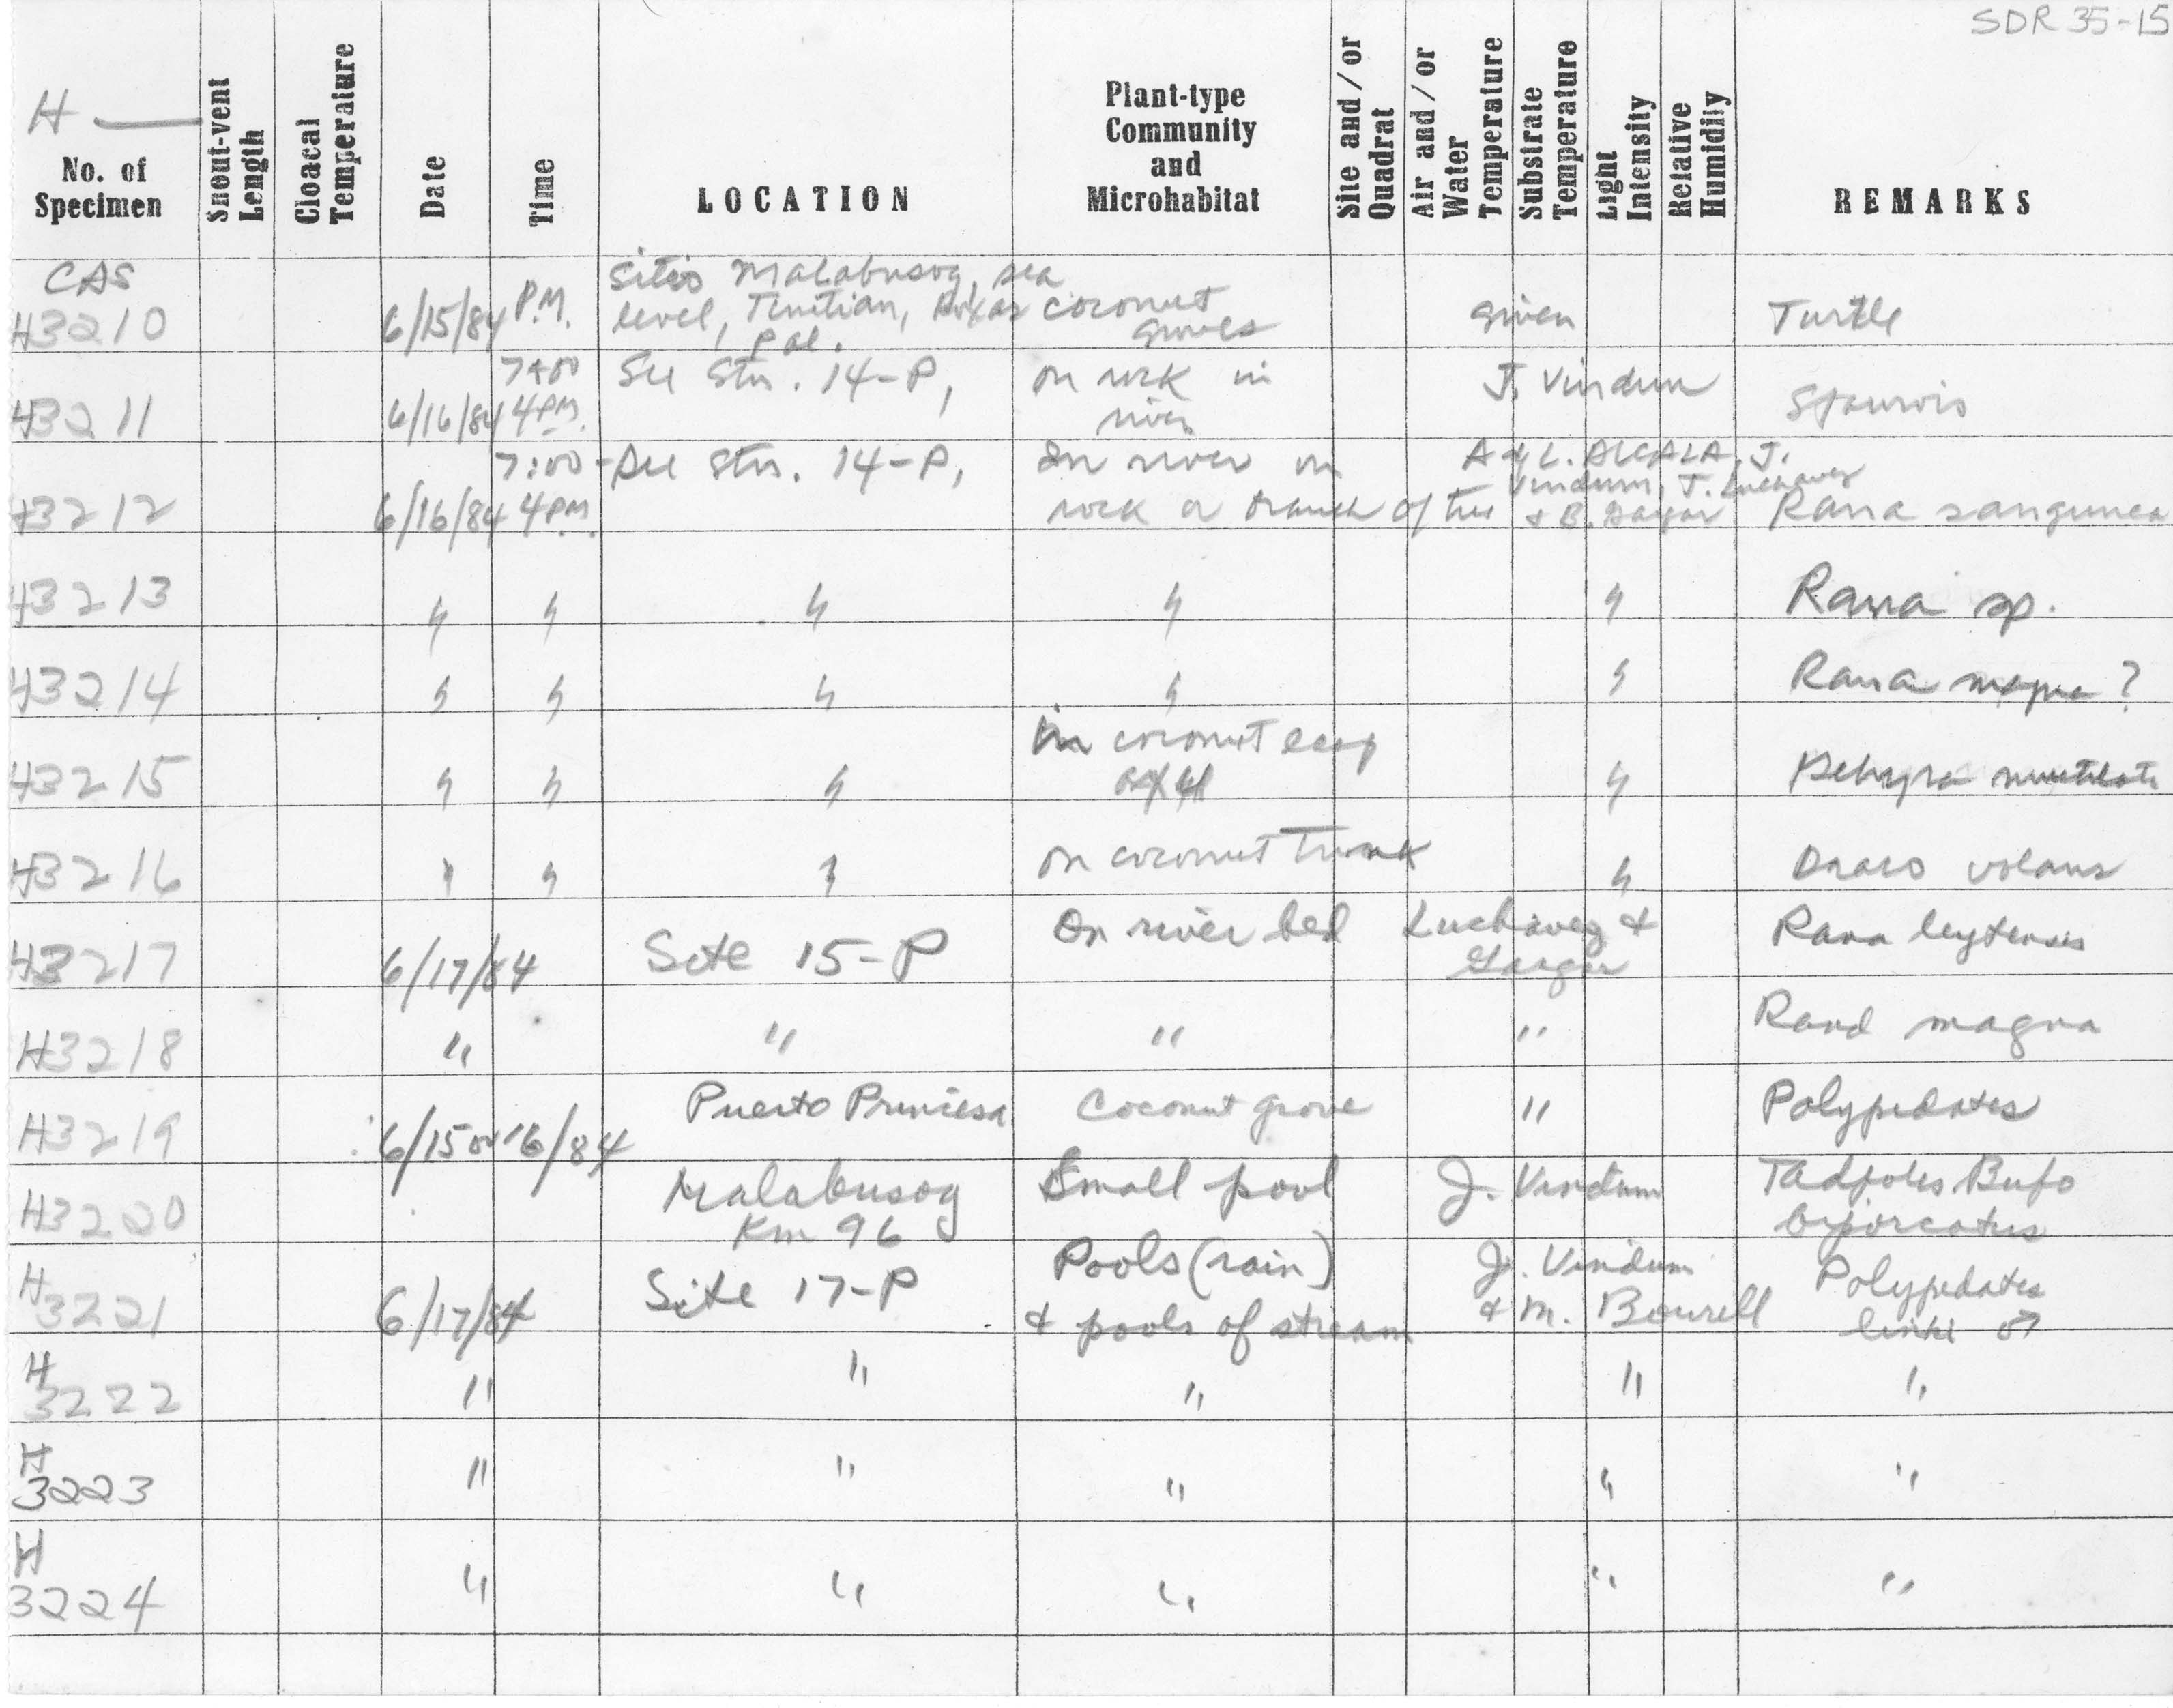 SDR 35-15
H —
No. of Specimen
Snout-vent Length
Cloacal Temperature
Date
Time
LOCATION
Plant-type Community and Microhabitat
Site and/or Quadrat
Air and/or Water Temperature
Substrate Temperature
Light Intensity
Relative Humidity
REMARKS
CAS H3210 6/15/84 P.M. Sitio Malabusog, sea level, Tinitian, Roxas Pal. coconut groves given Turtle
H3211 6/16/84 7:00 4 PM. See Stn. 14-P, on rock in river J. Vindum Staurois
H3212 6/16/84 7:00- 4 PM. See Stn. 14-P, In river on rock or branch of tree A & L. ALCALA, J. Vindum, J. Luchavez & B. Gargar Rana sangunea
H3213 " " " " " Rana sp.
H3214 " " " " " Rana magna ?
H3215 " " " in coconut leaf axil " Gehyra mutilata
H3216 " " " on coconut trunk " Draco volans
H3217 6/17/84 Site 15-P On river bed Luchavez & Gargar Rana leytensis
H3218 " " " " Rana magna
H3219 6/15 or 16/84 Puerto Princesa Coconut grove " Polypedates
H3220 Malabusog Km 96 Small pool J. Vindum Tadpoles Bufo biporcatus
H3221 6/17/84 Site 17-P Pools (rain) & pools of stream J. Vindum & M. Bourell Polypedates linki ♂
H3222 " " " " "
H3223 " " " " "
H3224 " " " " "